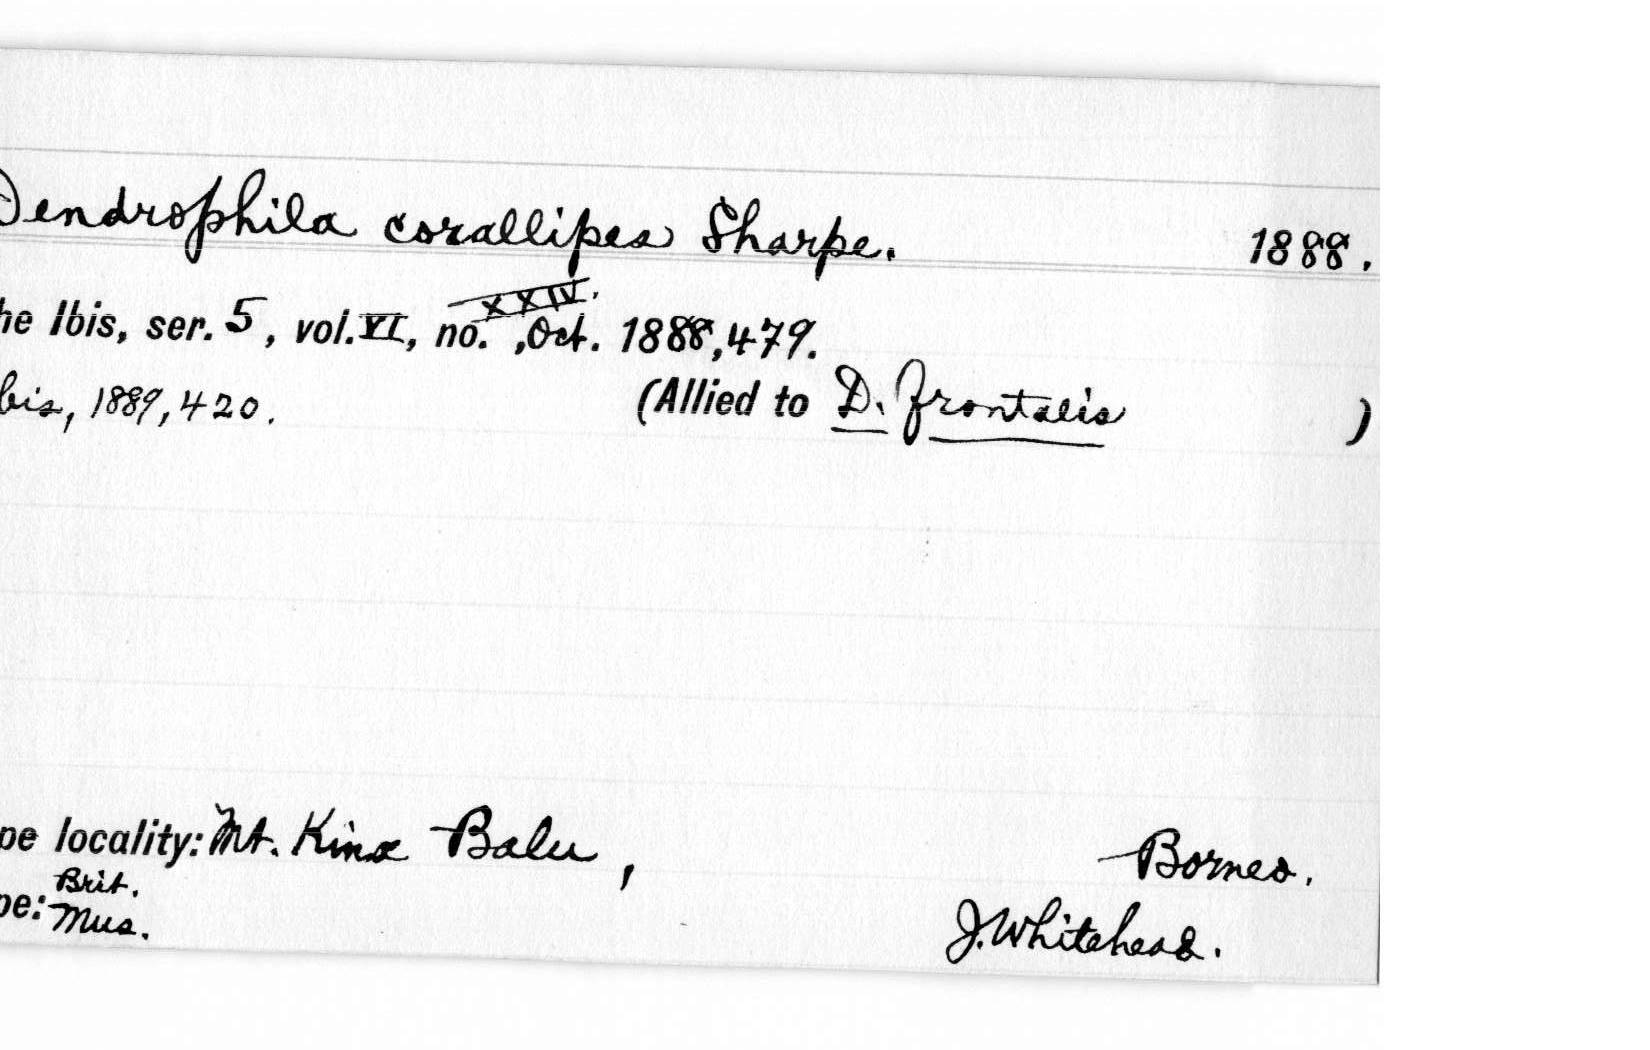 Dendrophila corallipes Sharpe. 1888.
he Ibis, ser. 5, vol. VI, no. XXIV., Oct. 1888, 479.
bis, 1889, 420. (Allied to D. frontalis )
pe locality: Mt. Kina Balu, Borneo.
pe: Brit. Mus. J. Whitehead.